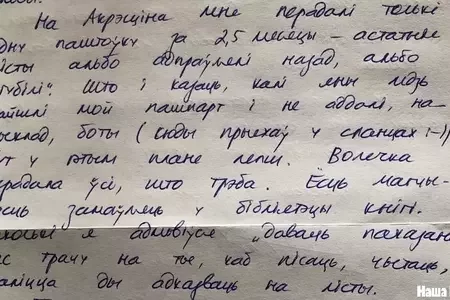 На Акрэсціна мне перадалі толькі
дну паштоўку за 2,5 месяцы – астатняе
істы альбо адправілі назад, альбо
губілі". Што і казаць, калі яны ледзь
айшлі мой пашпарт і не аддалі, на-
ыклад, боты (сюды прыехаў у сланцах :-)
ут у гэтым плане лепш. Волечка
ерадала ўсё, што трэба. Ёсць магчы-
есць замаўляць у бібліятэцы кнігі.
я адмовіўся „даваць паказан
ас трачу на тое, каб пісаць, чытаць,
аліцца ды адказваць на лісты.
Наша